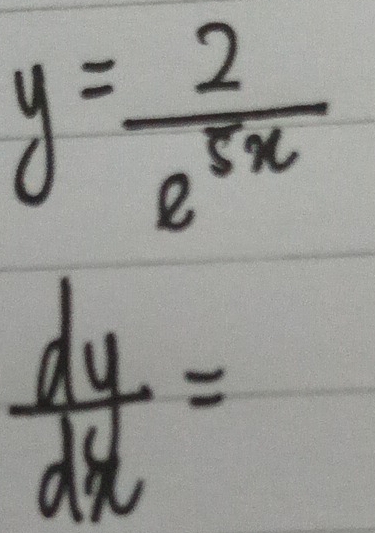 y = \frac{2}{e^{5x}}
\frac{dy}{dx} =